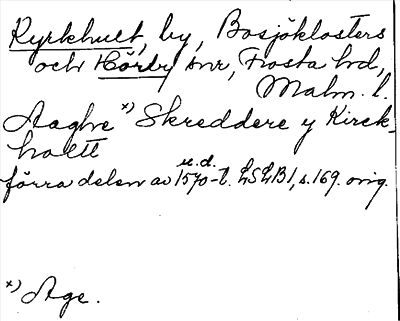 Kyrkhult, by, Bosjöklosters
och Hörby snr, Frosta hd,
Malm. l.
Aaghe x) Skreddere y Kirck-
hollt
förra delen av 1570-t. u.d. LSLB1, s. 169. orig.
x) Age.